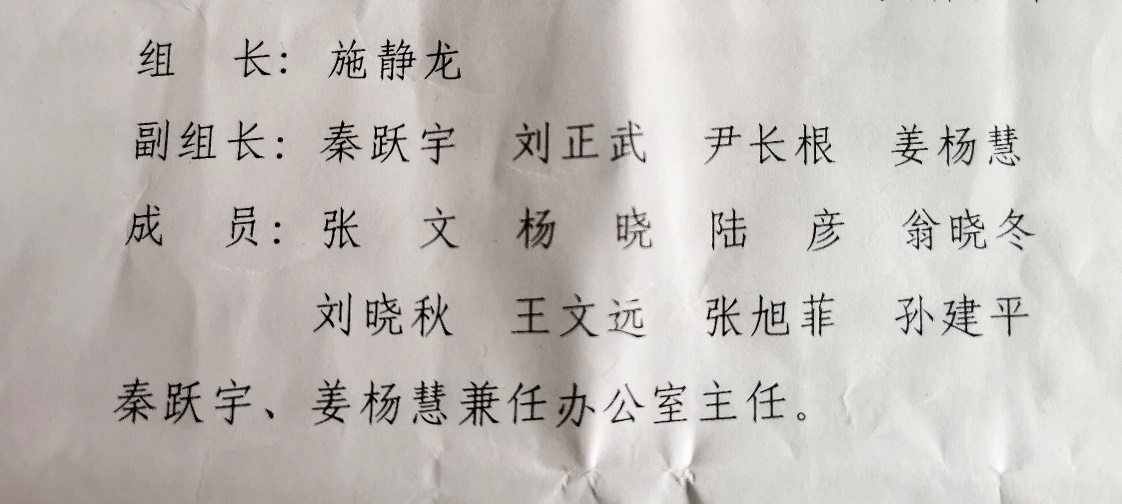 组 长：施静龙
副组长：秦跃宇 刘正武 尹长根 姜杨慧
成 员：张 文 杨 晓 陆 彦 翁晓冬
刘晓秋 王文远 张旭菲 孙建平
秦跃宇、姜杨慧兼任办公室主任。